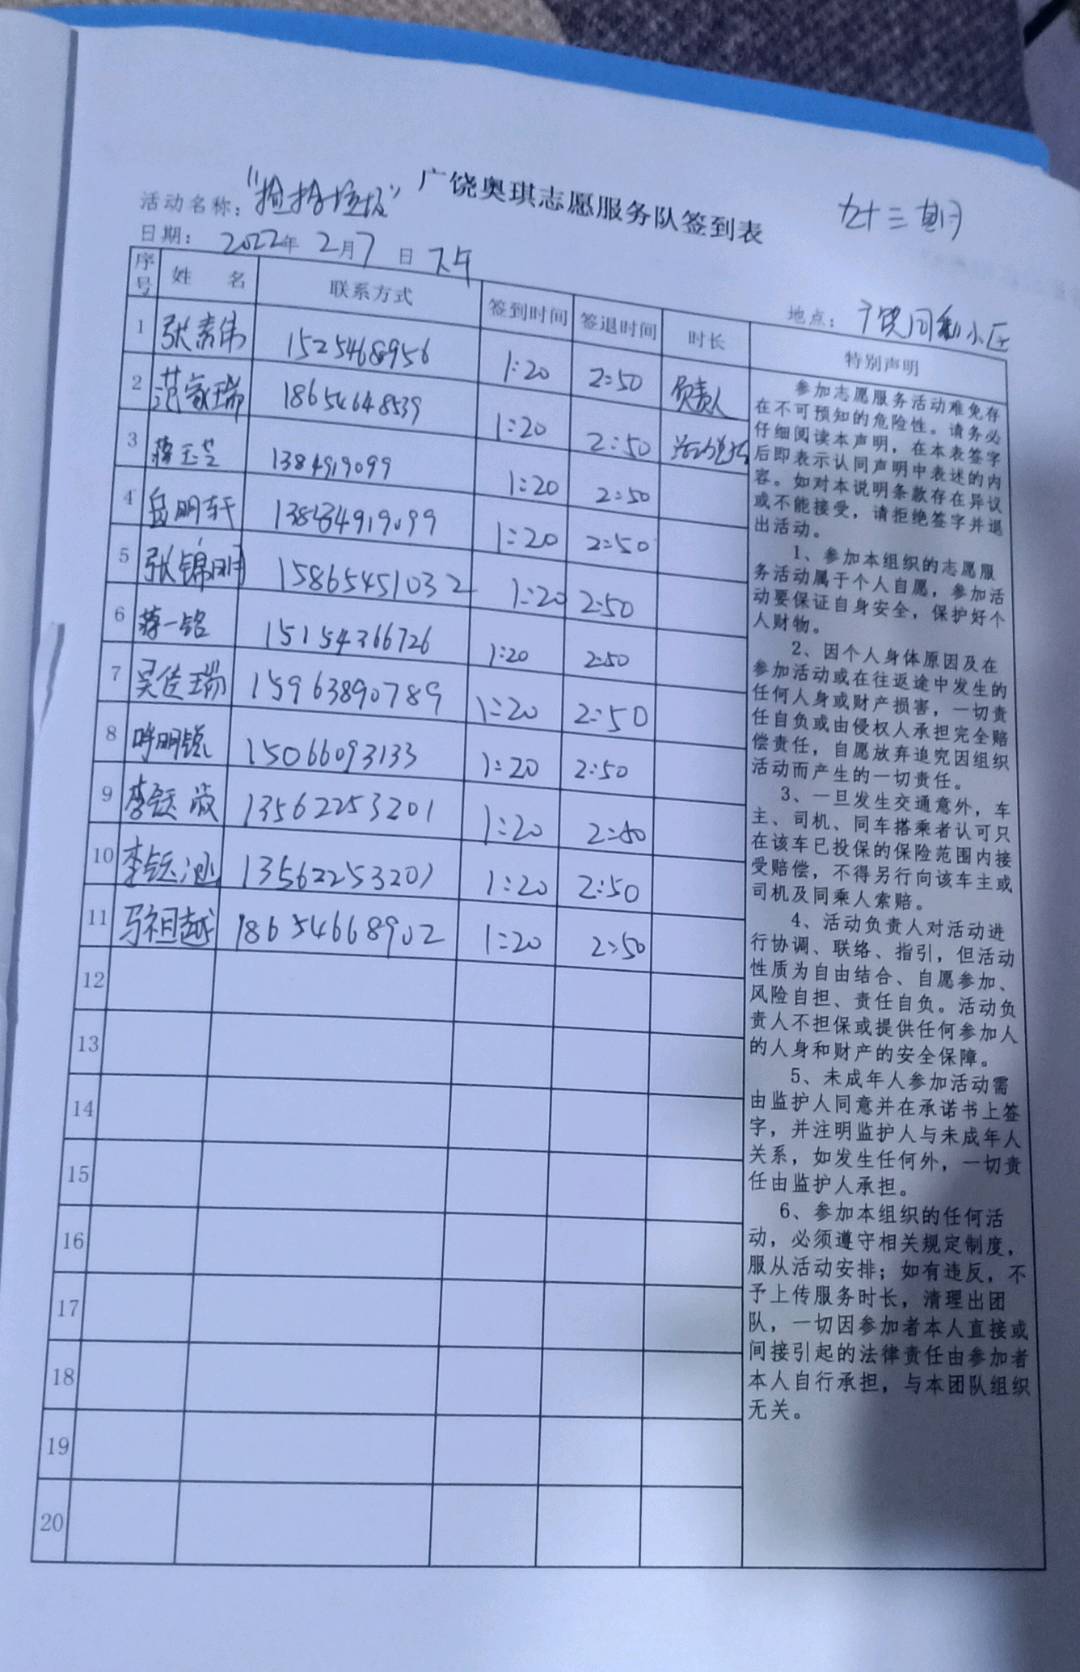 广饶奥琪志愿服务队签到表
九十三期
活动名称：“捡拾垃圾”
日期：2022年2月7日 下午
地点：广饶同和小区
序号 姓 名 联系方式 签到时间 签退时间 时长 特别声明
1 张素伟 1525468956 1:20 2:50 负责人
2 范家瑞 18654648539 1:20 2:50
3 1384919099 1:20 2:50
4 明轩 1:20 2:50
5 张锦明 15865451032 1:20 2:50
6 蒋一铭 15154366726 1:20 2:50
7 吴佳瑞 15963890789 1:20 2:50
8 明锐 15066093133 1:20 2:50
9 李 13562253201 1:20 2:50
10 李 13562253201 1:20 2:50
11 马祖越 18654668902 1:20 2:50
12
13
14
15
16
17
18
19
20
参加志愿服务活动难免存
在不可预知的危险性。请务必
仔细阅读本声明，在本表签字
后即表示认同声明中表述的内
容。如对本说明条款存在异议
或不能接受，请拒绝签字并退
出活动。
1、参加本组织的志愿服
务活动属于个人自愿，参加活
动要保证自身安全，保护好个
人财物。
2、因个人身体原因及在
参加活动或在往返途中发生的
任何人身或财产损害，一切责
任自负或由侵权人承担完全赔
偿责任，自愿放弃追究因组织
活动而产生的一切责任。
3、一旦发生交通意外，车
主、司机、同车搭乘者认可只
在该车已投保的保险范围内接
受赔偿，不得另行向该车主或
司机及同乘人索赔。
4、活动负责人对活动进
行协调、联络、指引，但活动
性质为自由结合、自愿参加、
风险自担、责任自负。活动负
责人不担保或提供任何参加人
的人身和财产的安全保障。
5、未成年人参加活动需
由监护人同意并在承诺书上签
字，并注明监护人与未成年人
关系，如发生任何外，一切责
任由监护人承担。
6、参加本组织的任何活
动，必须遵守相关规定制度，
服从活动安排；如有违反，不
予上传服务时长，清理出团
队，一切因参加者本人直接或
间接引起的法律责任由参加者
本人自行承担，与本团队组织
无关。